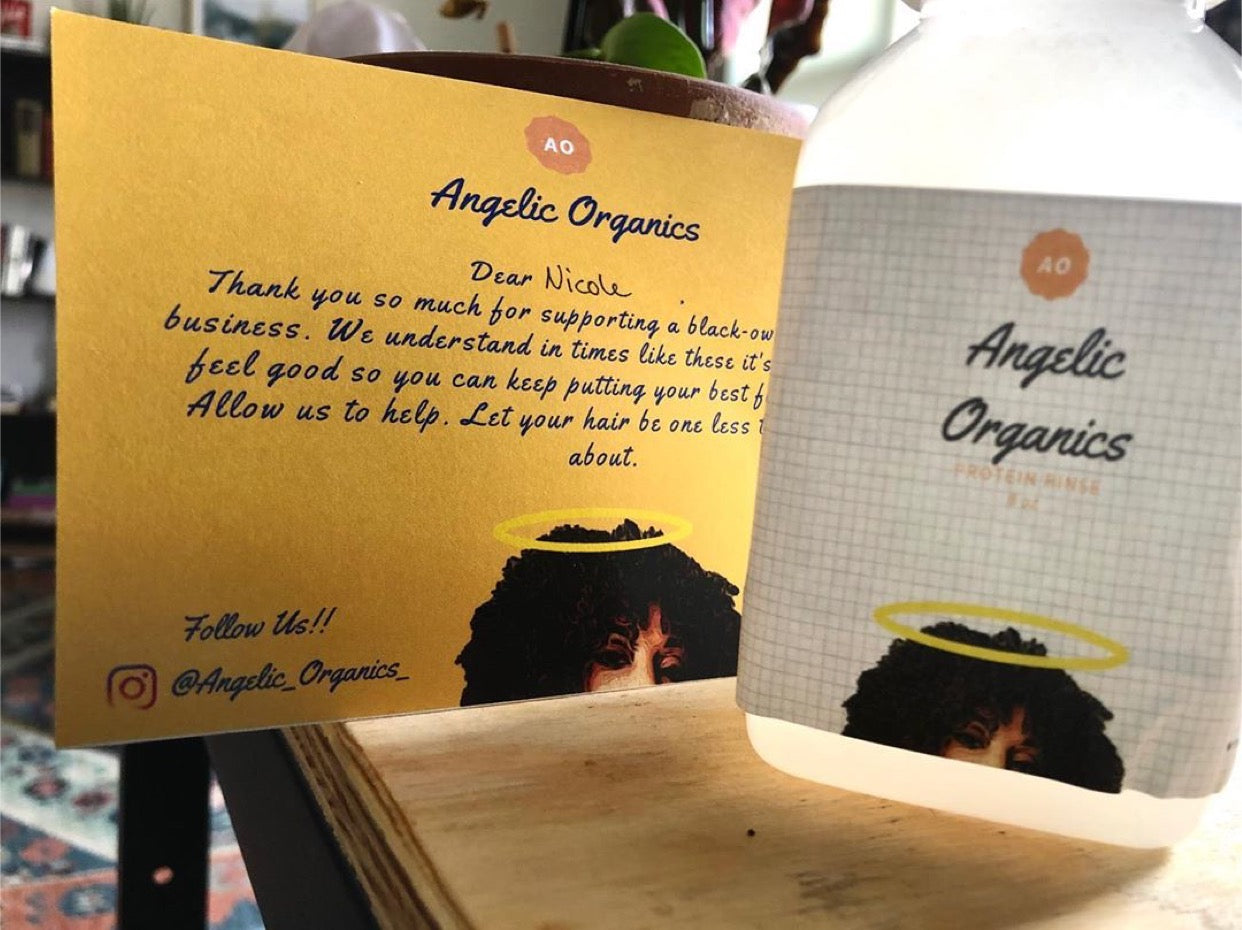 AO
Angelic Organics
Dear Nicole
Thank you so much for supporting a black-ow
business. We understand in times like these it's
feel good so you can keep putting your best f
Allow us to help. Let your hair be one less t
about.
Follow Us!!
@Angelic_Organics_
AO
Angelic
Organics
PROTEIN RINSE
8 oz